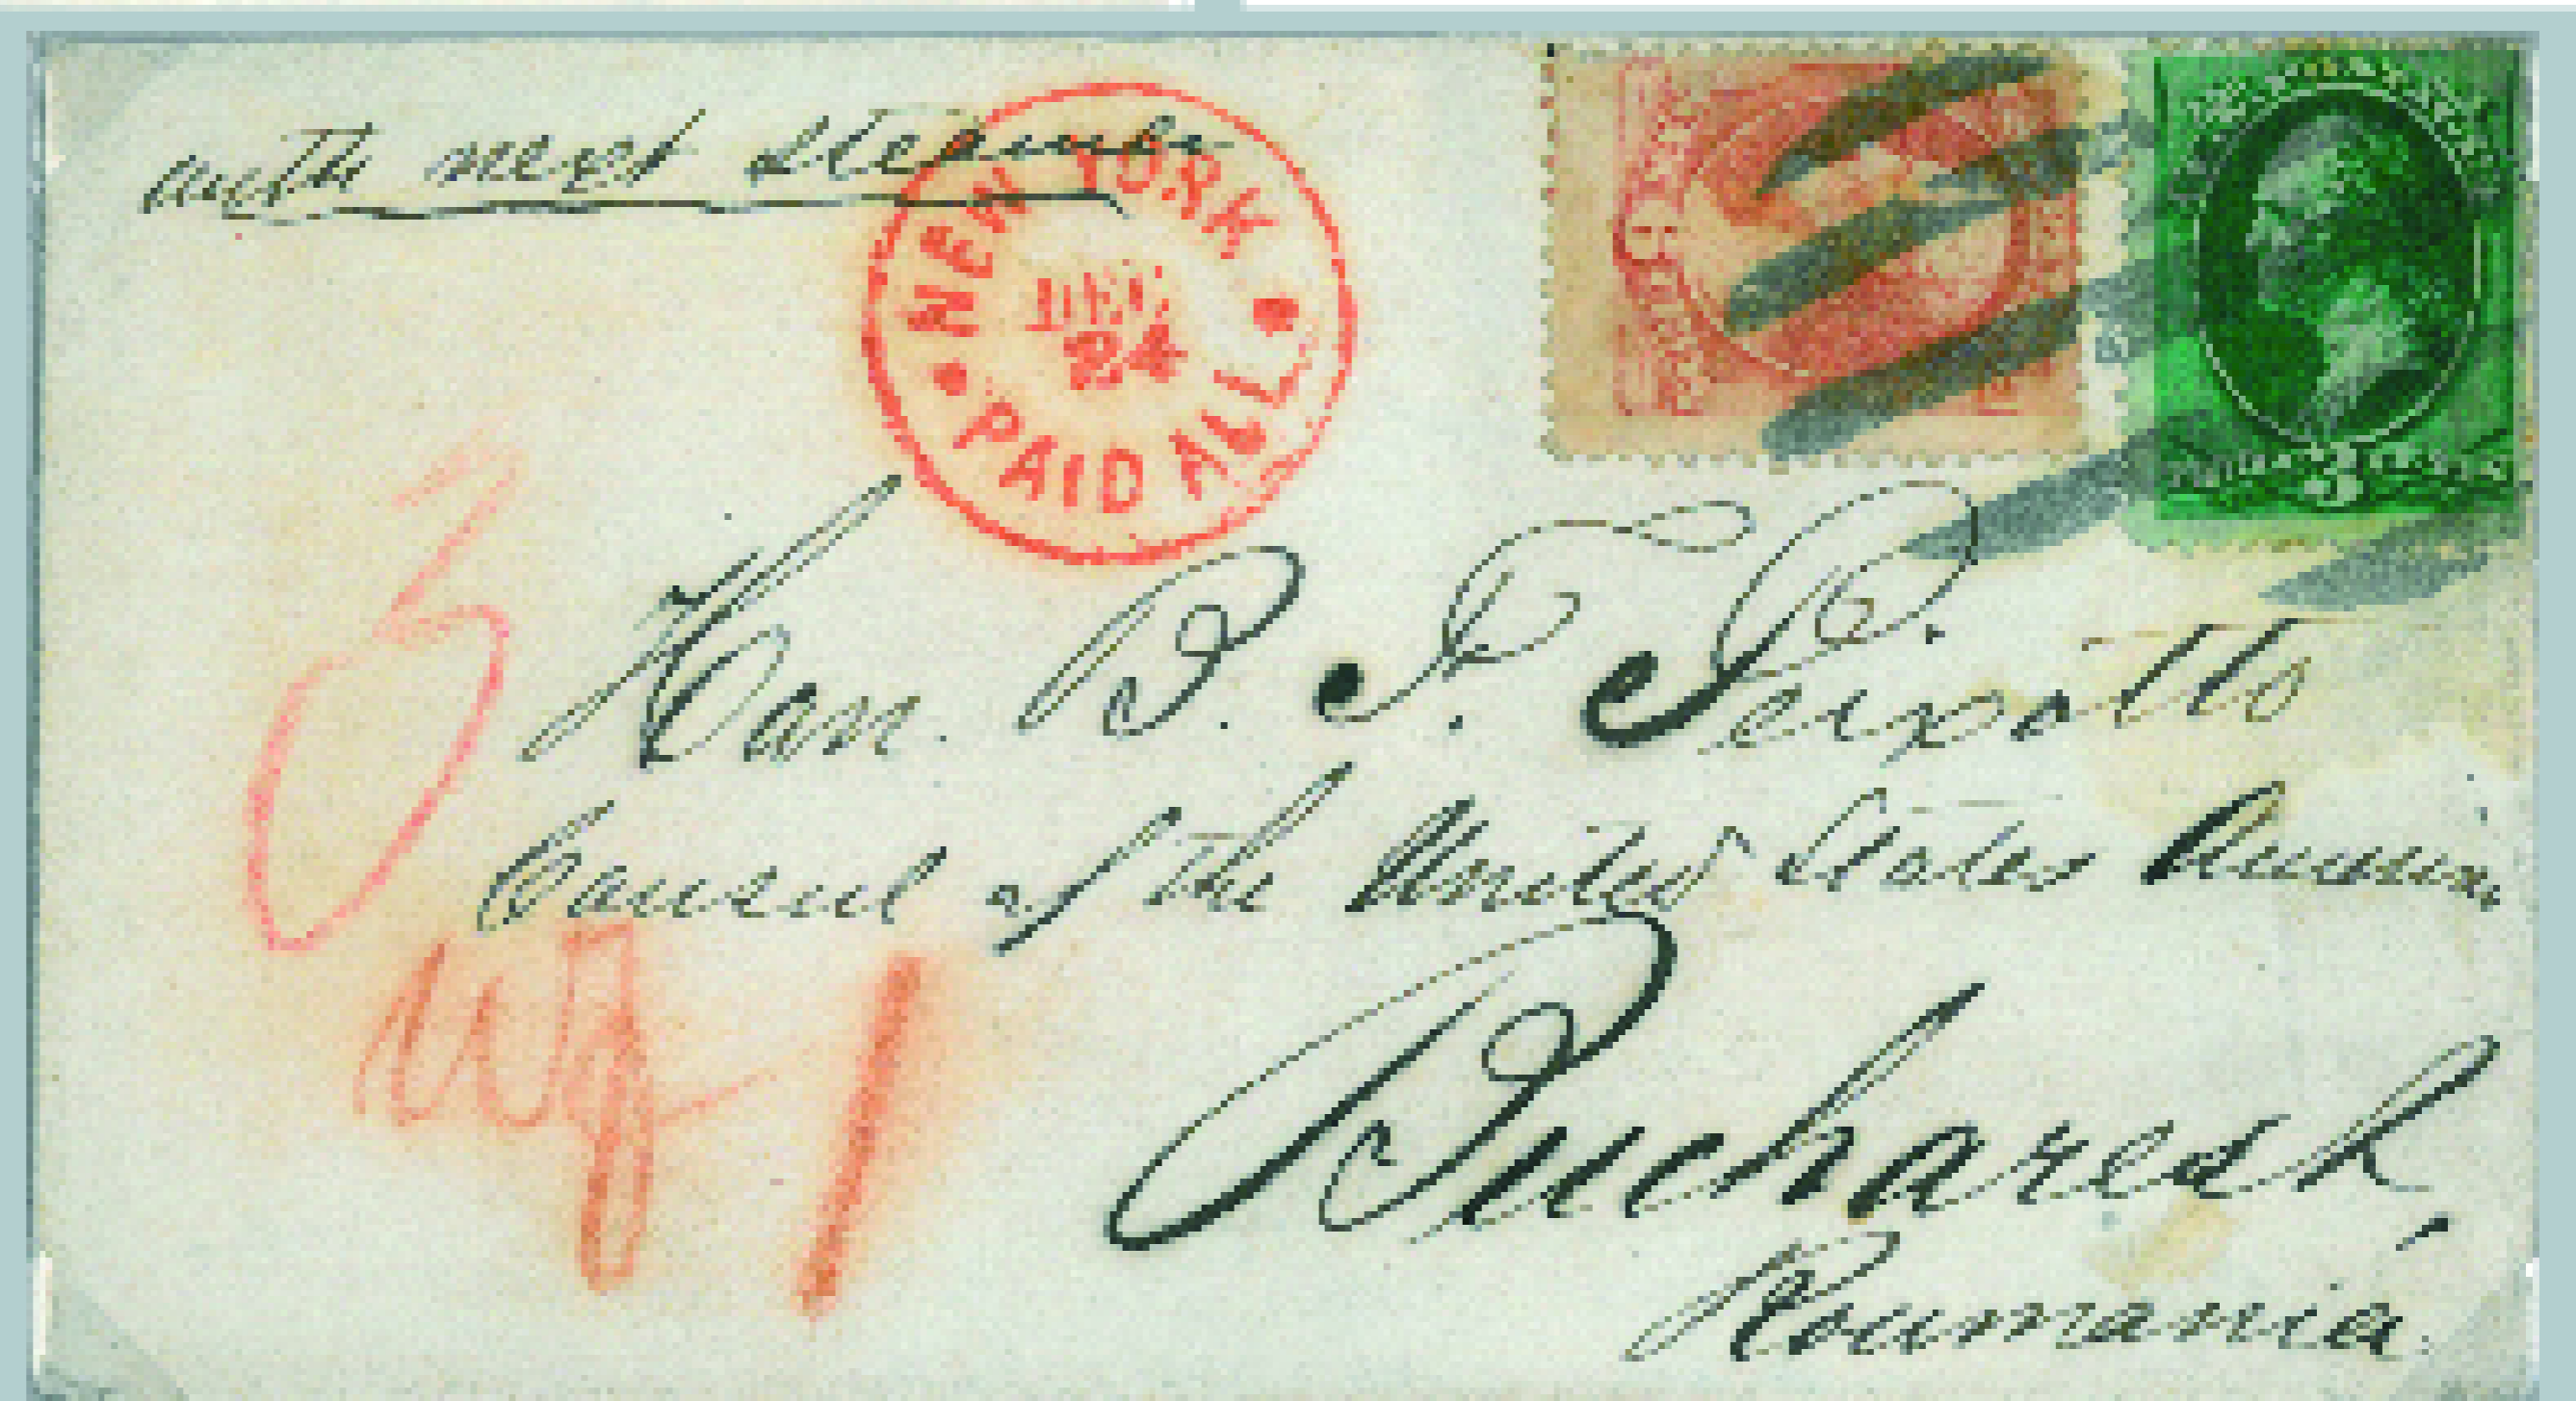 with next steamer
NEW YORK
DEC
24
PAID ALL
3
Hon. B. F. Peixotto
Consul of the United States
Bucharest,
Roumania.